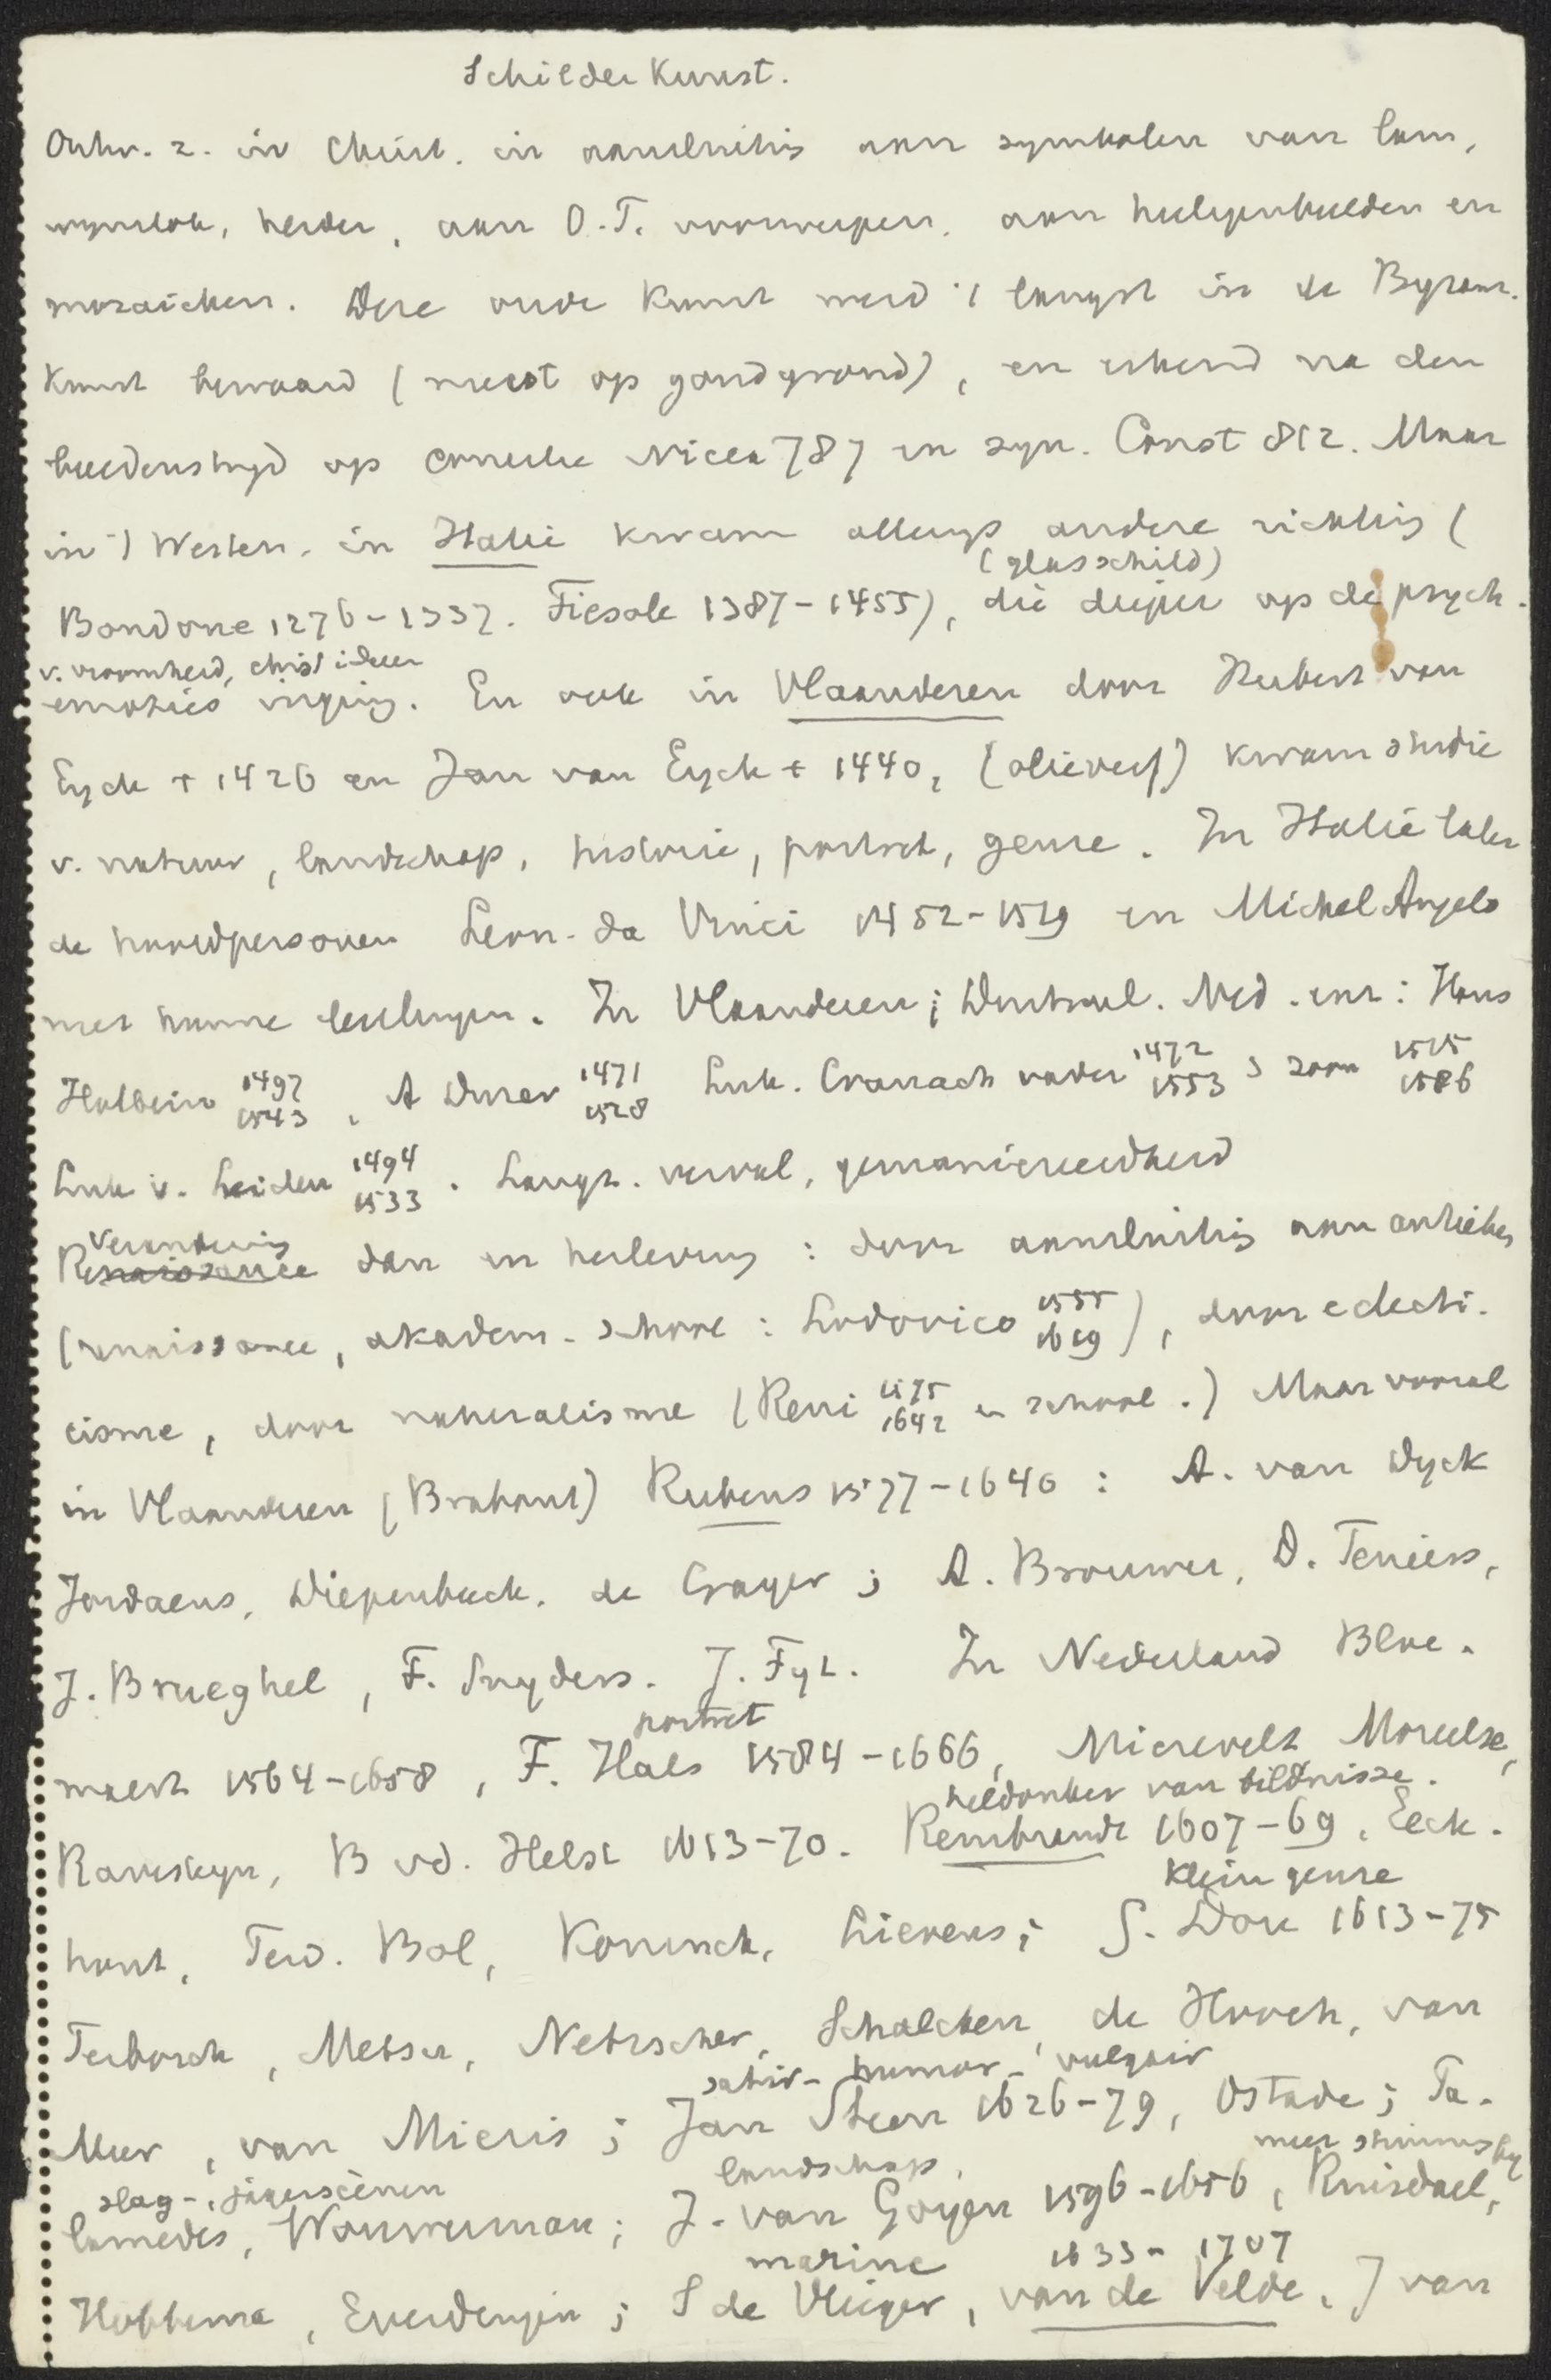 Schilder Kunst.
Ontw. z. in Christ. in aansluiting aan symbolen van lam,
wijnstok, herder, aan O.T. voorwerpen, aan heiligenbeelden en
mozaieken. Deze oude Kunst werd 't langst in de Byzant.
Kunst bewaard (meest op goudgrond), en erkend na den
beeldenstrijd op concilie Nicea 787 en syn. Const 812. Maar
in 't Westen, in Italie kwam allengs andere richting (
(glasschild)
Bondone 1276-1337. Fiesole 1387-1455), die dieper op de psych.
v. vroomheid, christ ideeen
emoties inging. En ook in Vlaanderen door Hubert van
Eyck + 1426 en Jan van Eyck + 1440, (olieverf) kwam studie
v. natuur, landschap, historie, portret, genre. In Italie later
de hoofdpersonen Leon. da Vinci 1452-1519 en Michel Angelo
met hunne leerlingen. In Vlaanderen; Duitschl. Ned. enz: Hans
Holbein 1497 1543, A Durer 1471 1528 Luk. Cranach vader 1472 1553 zoon 1515 1586
Luk v. Leiden 1494 1533. Langz. verval, gemaniereerdheid
Verandering
Renaissance dan en herleving: door aansluiting aan antieken
(renaissance, akadem. school: Ludovico 1555 1619), door eclecti-
cisme, door naturalisme (Reni 1575 1642 en school.) Maar vooral
in Vlaanderen (Brabant) Rubens 1577-1640: A. van Dyck
Jordaens, Diepenbeek, de Crayer; A. Brouwer, D. Teniers,
J. Brueghel, F. Snyders. J. Fyt. In Nederland Bloe-
portret
maert 1564-1658, F. Hals 1584-1666, Mierevelt Moreelse,
heldonker van bildnisse.
Ravesteyn, B vd. Helst 1613-70. Rembrandt 1607-69, Eeck-
klein genre
hout, Ferd. Bol, Koninck, Lievens; G. Dou 1613-75
Terborch, Metsu, Netscher, Schalcken, de Hooch, van
satir- humor- vulgair
Meer, van Mieris; Jan Steen 1626-79, Ostade; Pa-
slag-, jagerscènen landschap, meer stemming
lamedes, Wouwerman; J. van Goyen 1596-1656, Ruisdael,
marine 1633-1707
Hobbema, Everdingen; S de Vlieger, van de Velde, J van